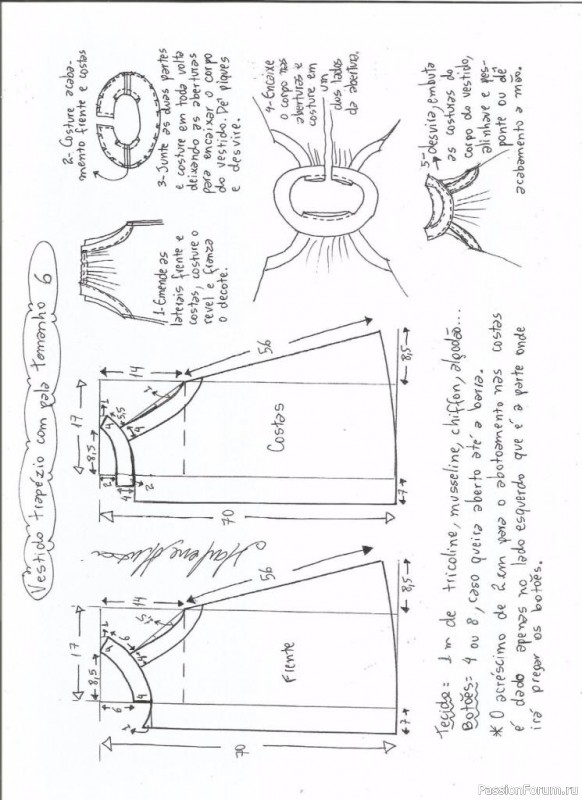 Vestido trapézio com pala tamanho 6
1-Emende as
laterais frente e
costas, costure o
revel e franza
o decote.
2- Costure acaba-
mento frente e costas
3- Junte as duas partes
e costure em toda volta
deixando as aberturas
para encaixar o corpo
do vestido. Dê piques
e desvire.
4-Encaixe
o corpo nas
aberturas e
costure em
um
dos lados
da abertura.
5-Desvira, embuta
as costuras do
corpo do vestido,
alinhave e pes-
ponte ou dê
acabamento a mão.
17
8,5
1
6
4
6
4
4,5
14
56
2
Frente
70
7
8,5
17
8,5
1
4
5,5
4
2
4
2
1
14
56
Costas
70
7
8,5
Tecido= 1 m de tricoline, musseline, chiffon, algodão...
Botões= 4 ou 8, caso queira aberto até a barra.
* O acréscimo de 2 cm para o abotoamento nas costas
é dado apenas no lado esquerdo que é a parte onde
irá pregar os botões.
PassionForum.ru